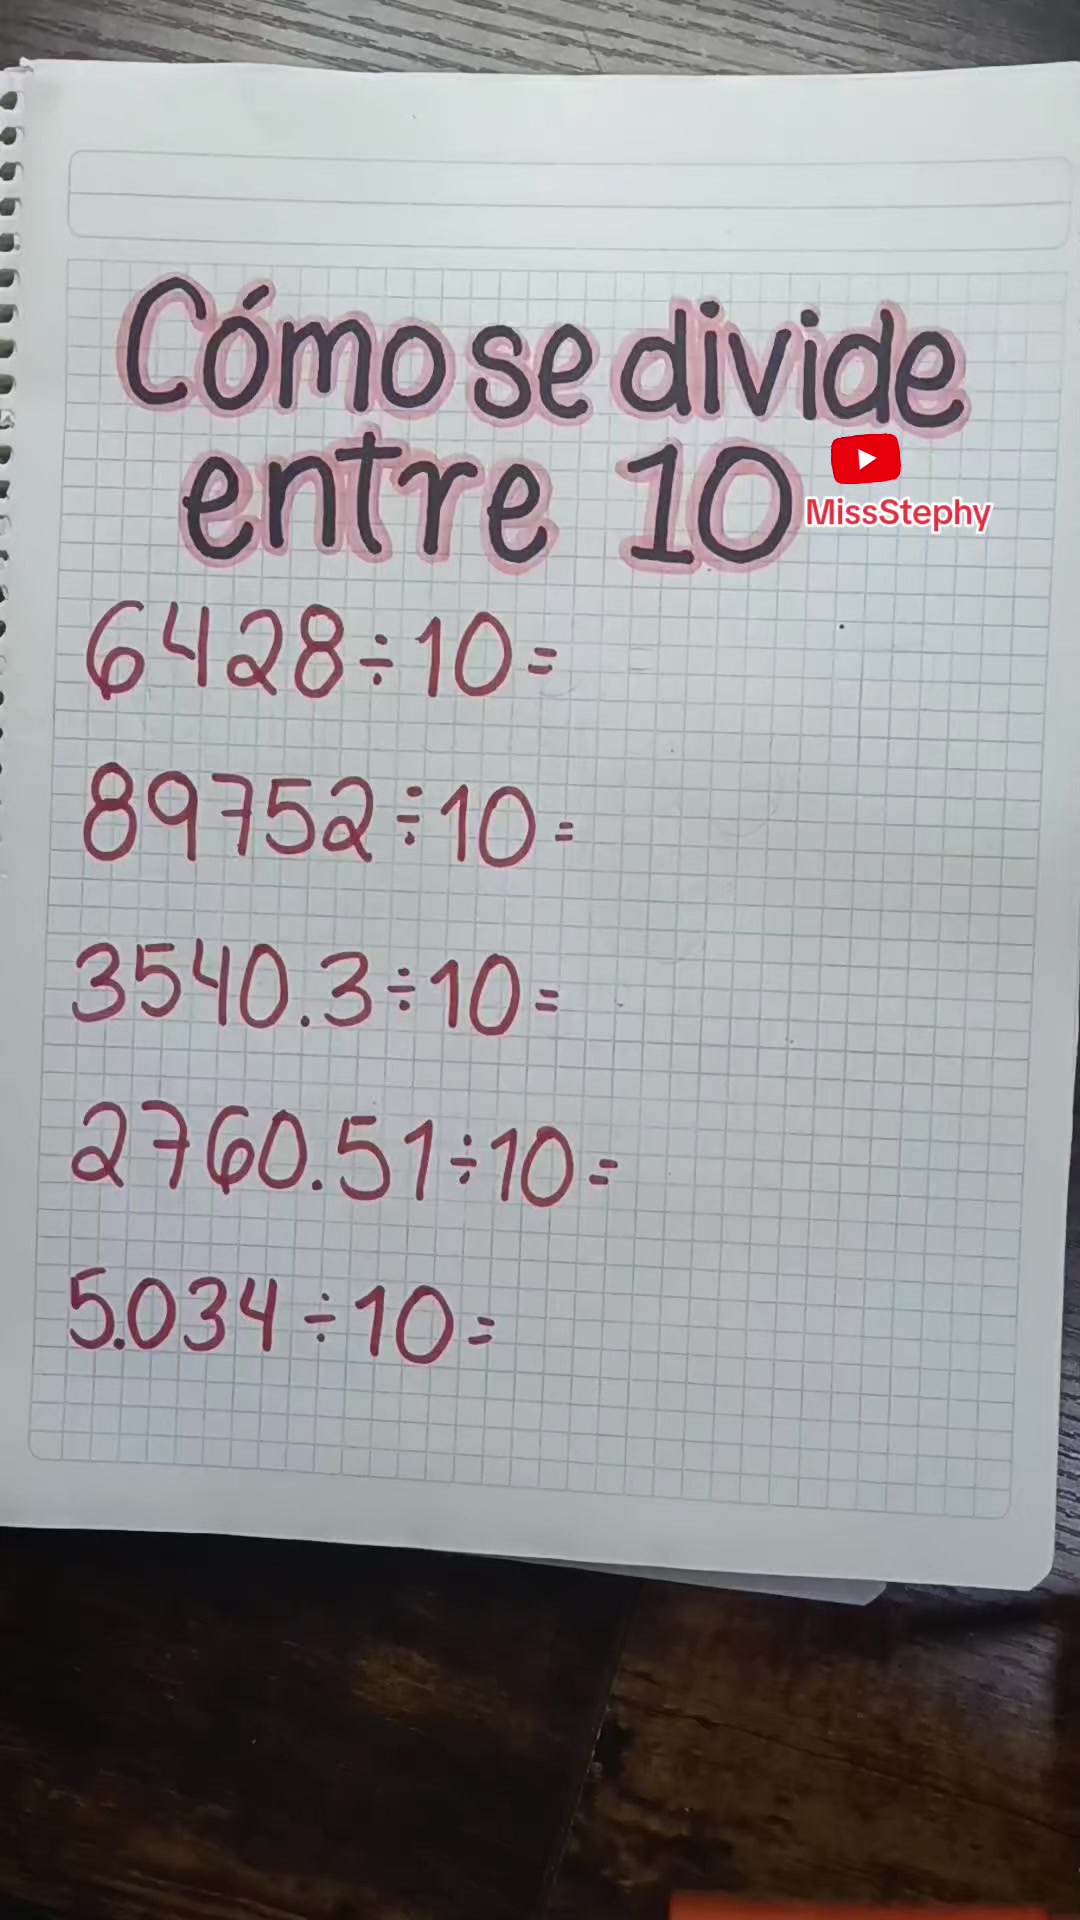 Cómo se divide
entre 10
MissStephy
6428÷10=
89752÷10=
3540.3÷10=
2760.51÷10=
5.034÷10=